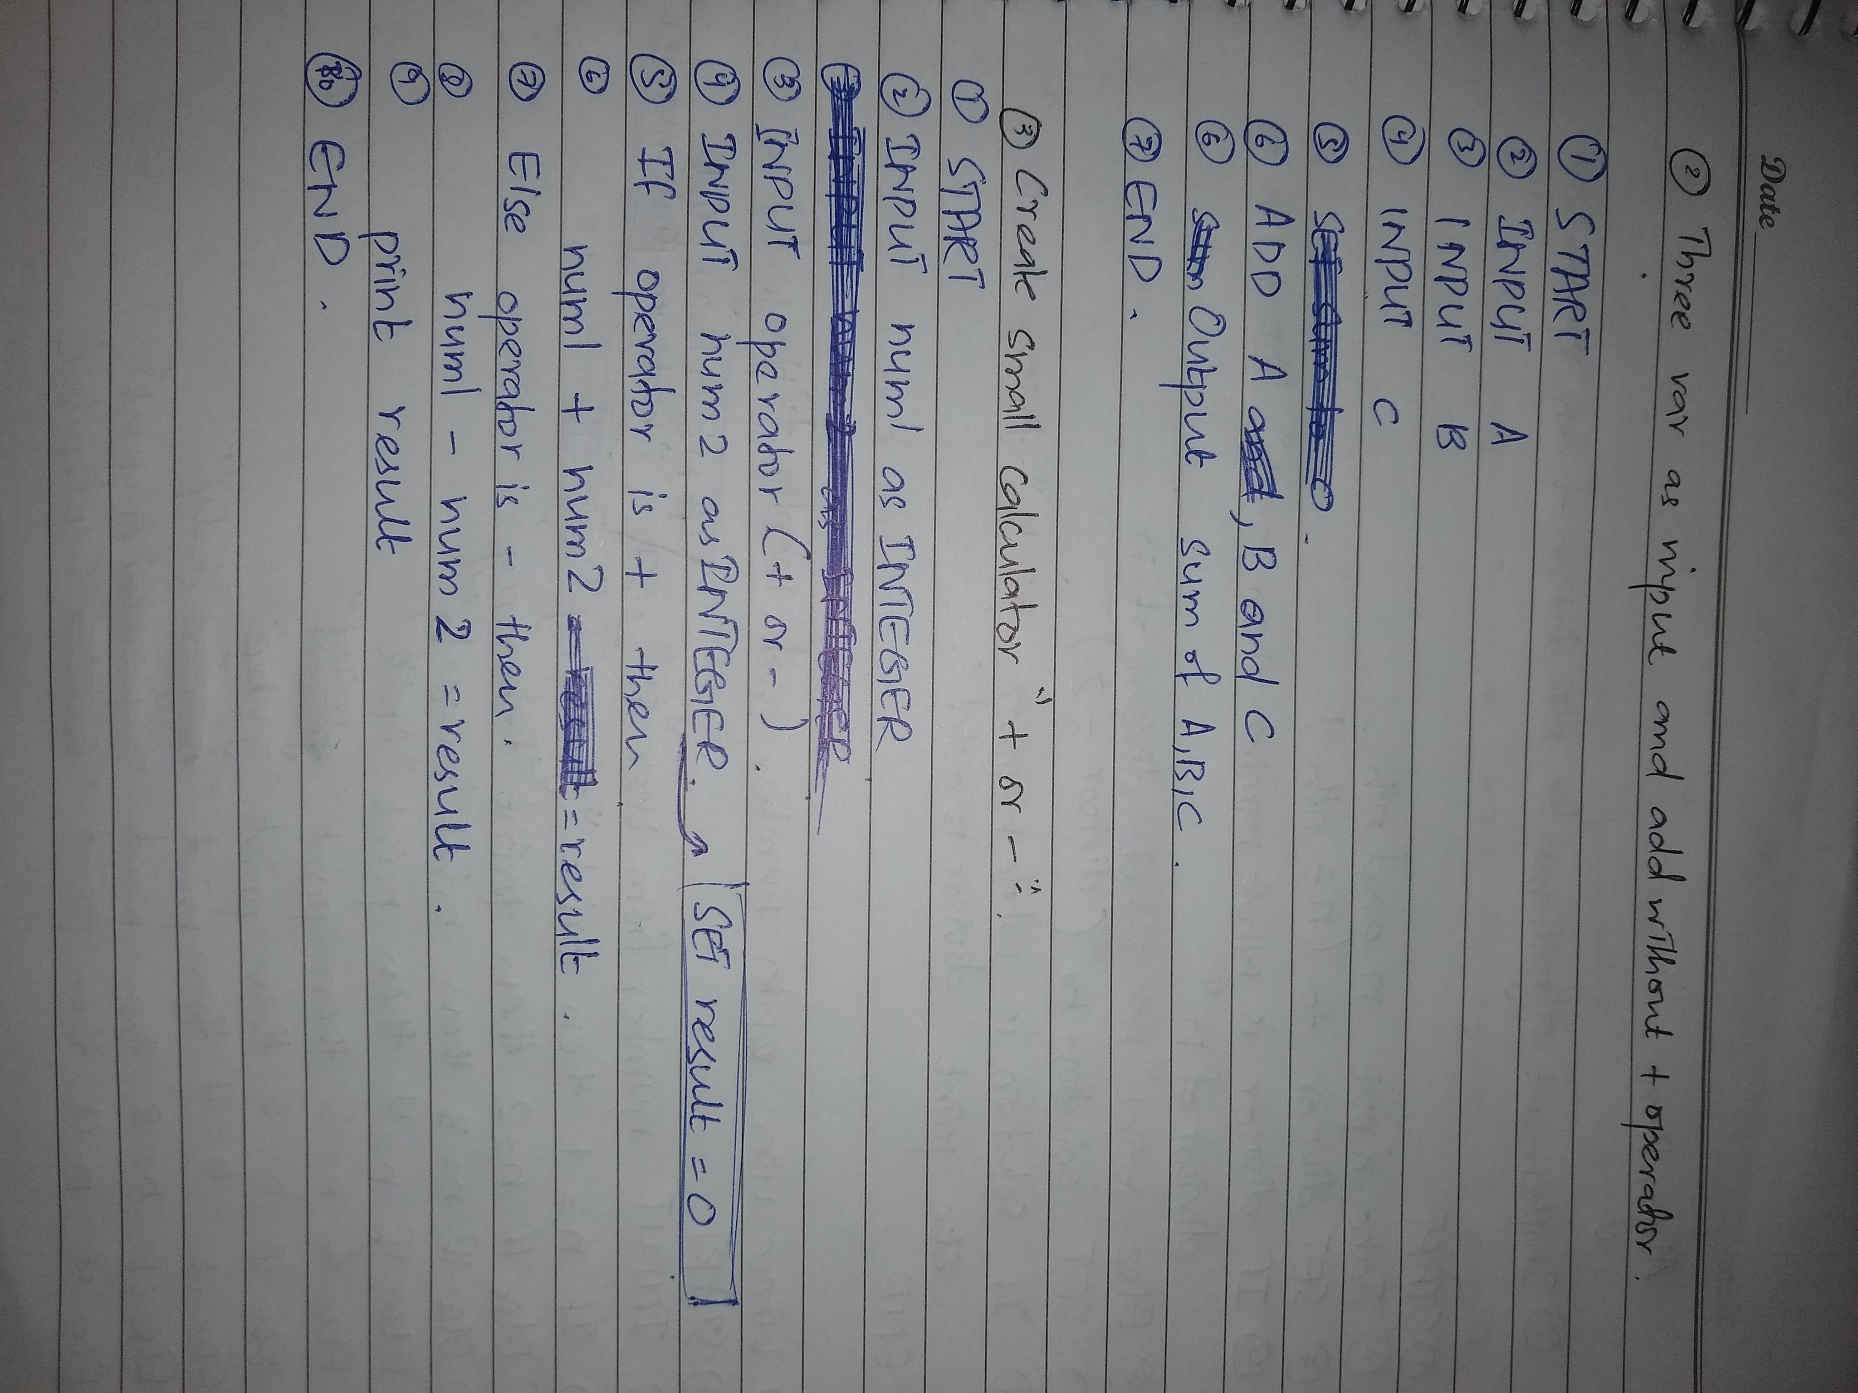 Date
② Three var as input and add without + operator.
① START
② INPUT A
③ INPUT B
④ INPUT C
⑤
⑥ ADD A , B and C
⑥ Output sum of A,B,C.
⑦ END.
③ Create small calculator " + or - ".
① START
② INPUT num1 as INTEGER
③ INPUT operator (+ or -).
④ INPUT num2 as INTEGER. SET result = 0
⑤ If operator is + then
⑥ num1 + num2 = result.
⑦ Else operator is - then.
⑧ num1 - num2 = result.
⑨ print result
⑩ END.